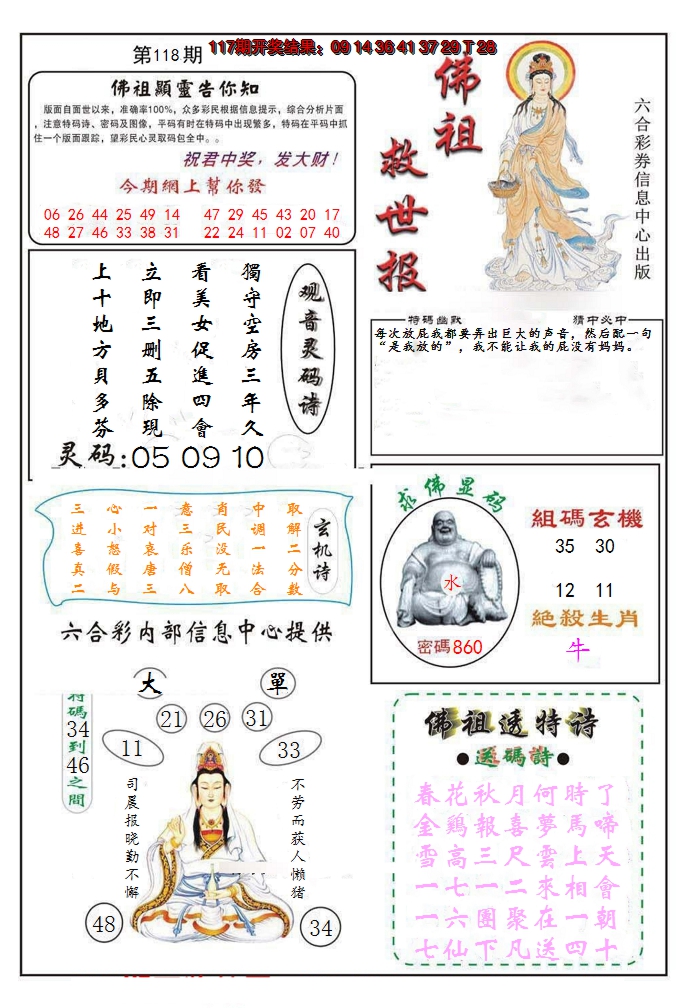 第118期
117期开奖结果：09 14 36 41 37 29 T 28
佛祖顯靈告你知
版面自面世以来，准确率100%，众多彩民根据信息提示，综合分析片面
，注意特码诗、密码及图像，平码有时在特码中出现繁多，特码在平码中抓
住一个版面跟踪，望彩民心灵取码包全中。。
祝君中奖，发大财！
今期網上幫你發
06 26 44 25 49 14 47 29 45 43 20 17
48 27 46 33 38 31 22 24 11 02 07 40
佛祖救世报
六合彩券信息中心出版
獨守空房三年久
看美女促進四會
立即三删五除現
上十地方貝多芬
观音灵码诗
灵码:05 09 10
特碼幽默
猜中必中
每次放屁我都要弄出巨大的声音，然后配一句
“是我放的”，我不能让我的屁没有妈妈。
取解二分数
中调一法合
肖民没无取
意三乐僧八
一对哀唐三
心小怒假与
三进喜真二
玄机诗
六合彩内部信息中心提供
求佛显码
水
密碼860
組碼玄機
35 30
12 11
絶殺生肖
牛
大
單
特碼34到46之間
21
26
31
11
33
司晨报晓勤不懈
不劳而获人懒猪
48
34
佛祖透特诗
●送碼詩●
春花秋月何時了
金鷄報喜夢馬啼
雪高三尺雲上天
一七一二來相會
一六團聚在一朝
七仙下凡送四十